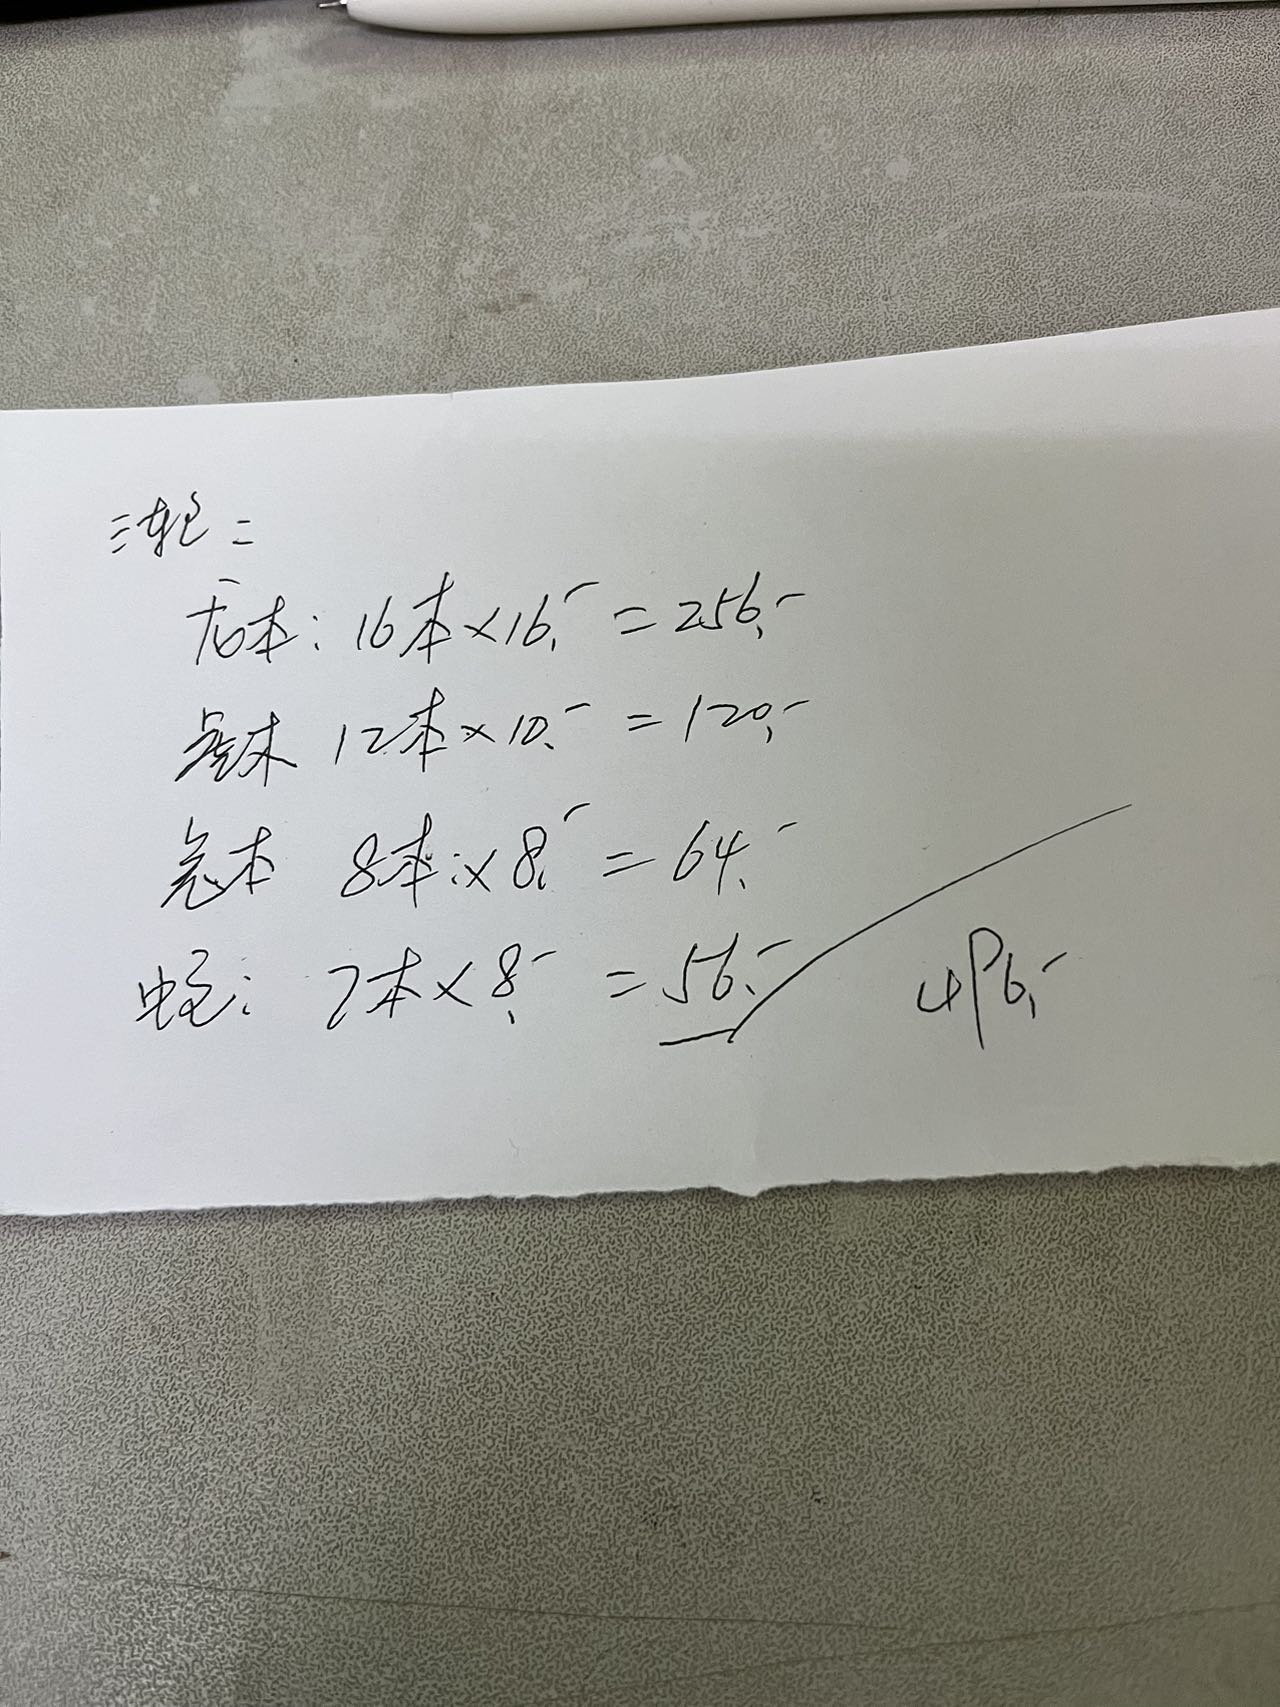 本: 16本×16.- = 256.-
本 12本×10.- = 120.-
本 8本×8.- = 64.-
7本×8.- = 56.-
496.-